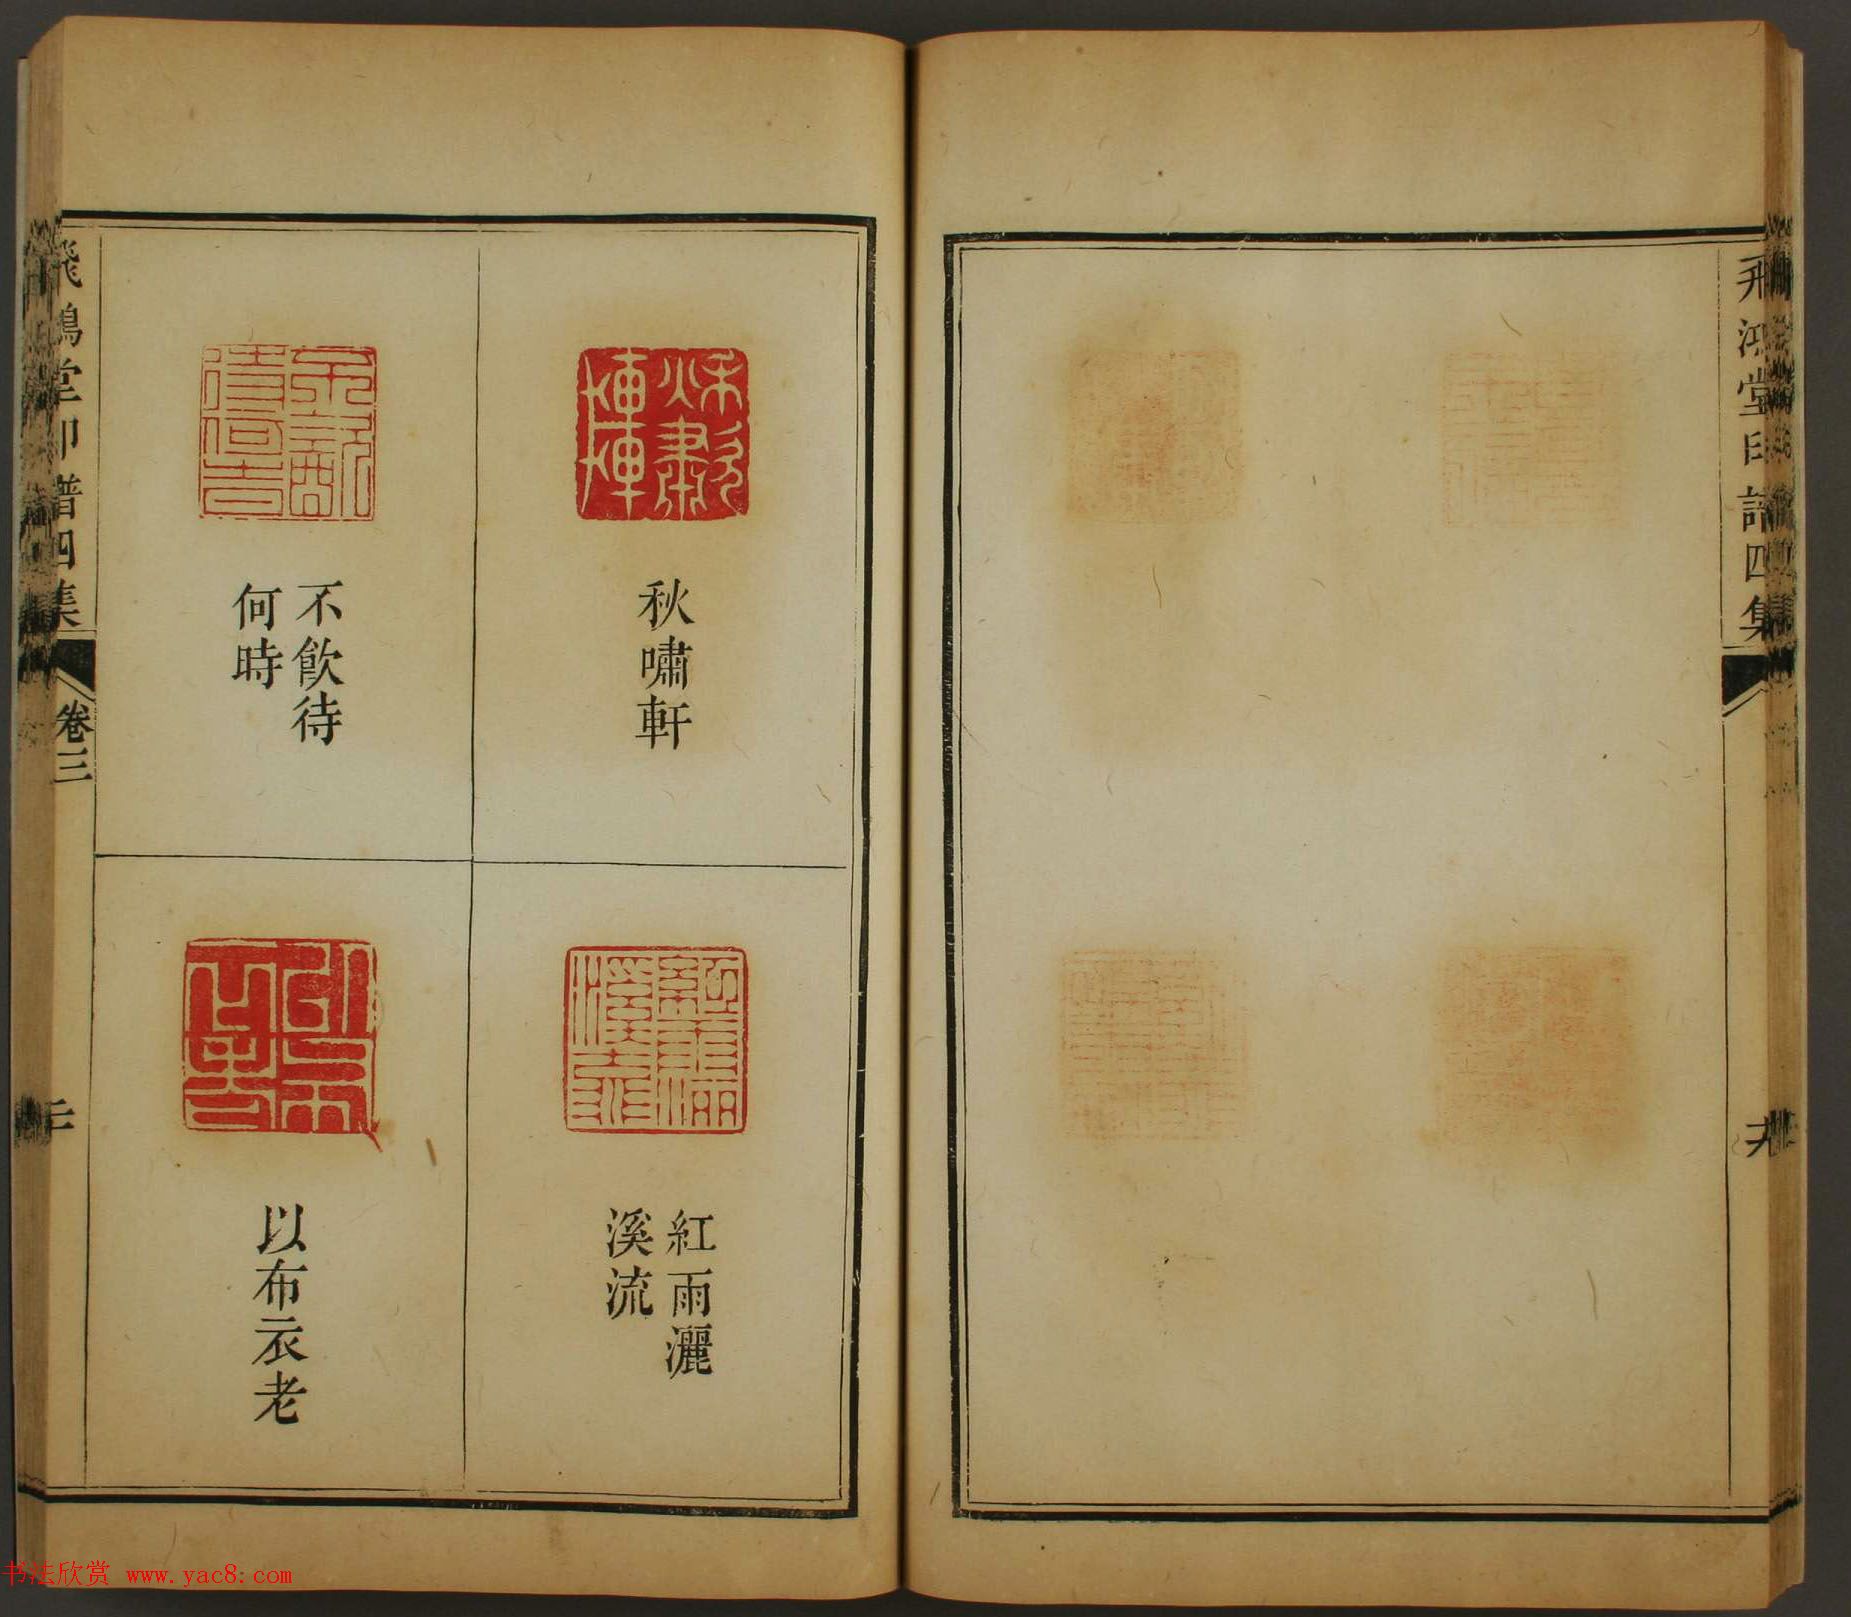 飛鴻堂印譜四集
十九
秋嘯軒
不飲待
何時
紅雨灑
溪流
以布衣老
飛鴻堂印譜四集
卷三
二十
书法欣赏 www.yac8.com